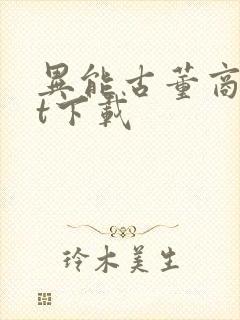 異能古董商
t下載
玲木美生